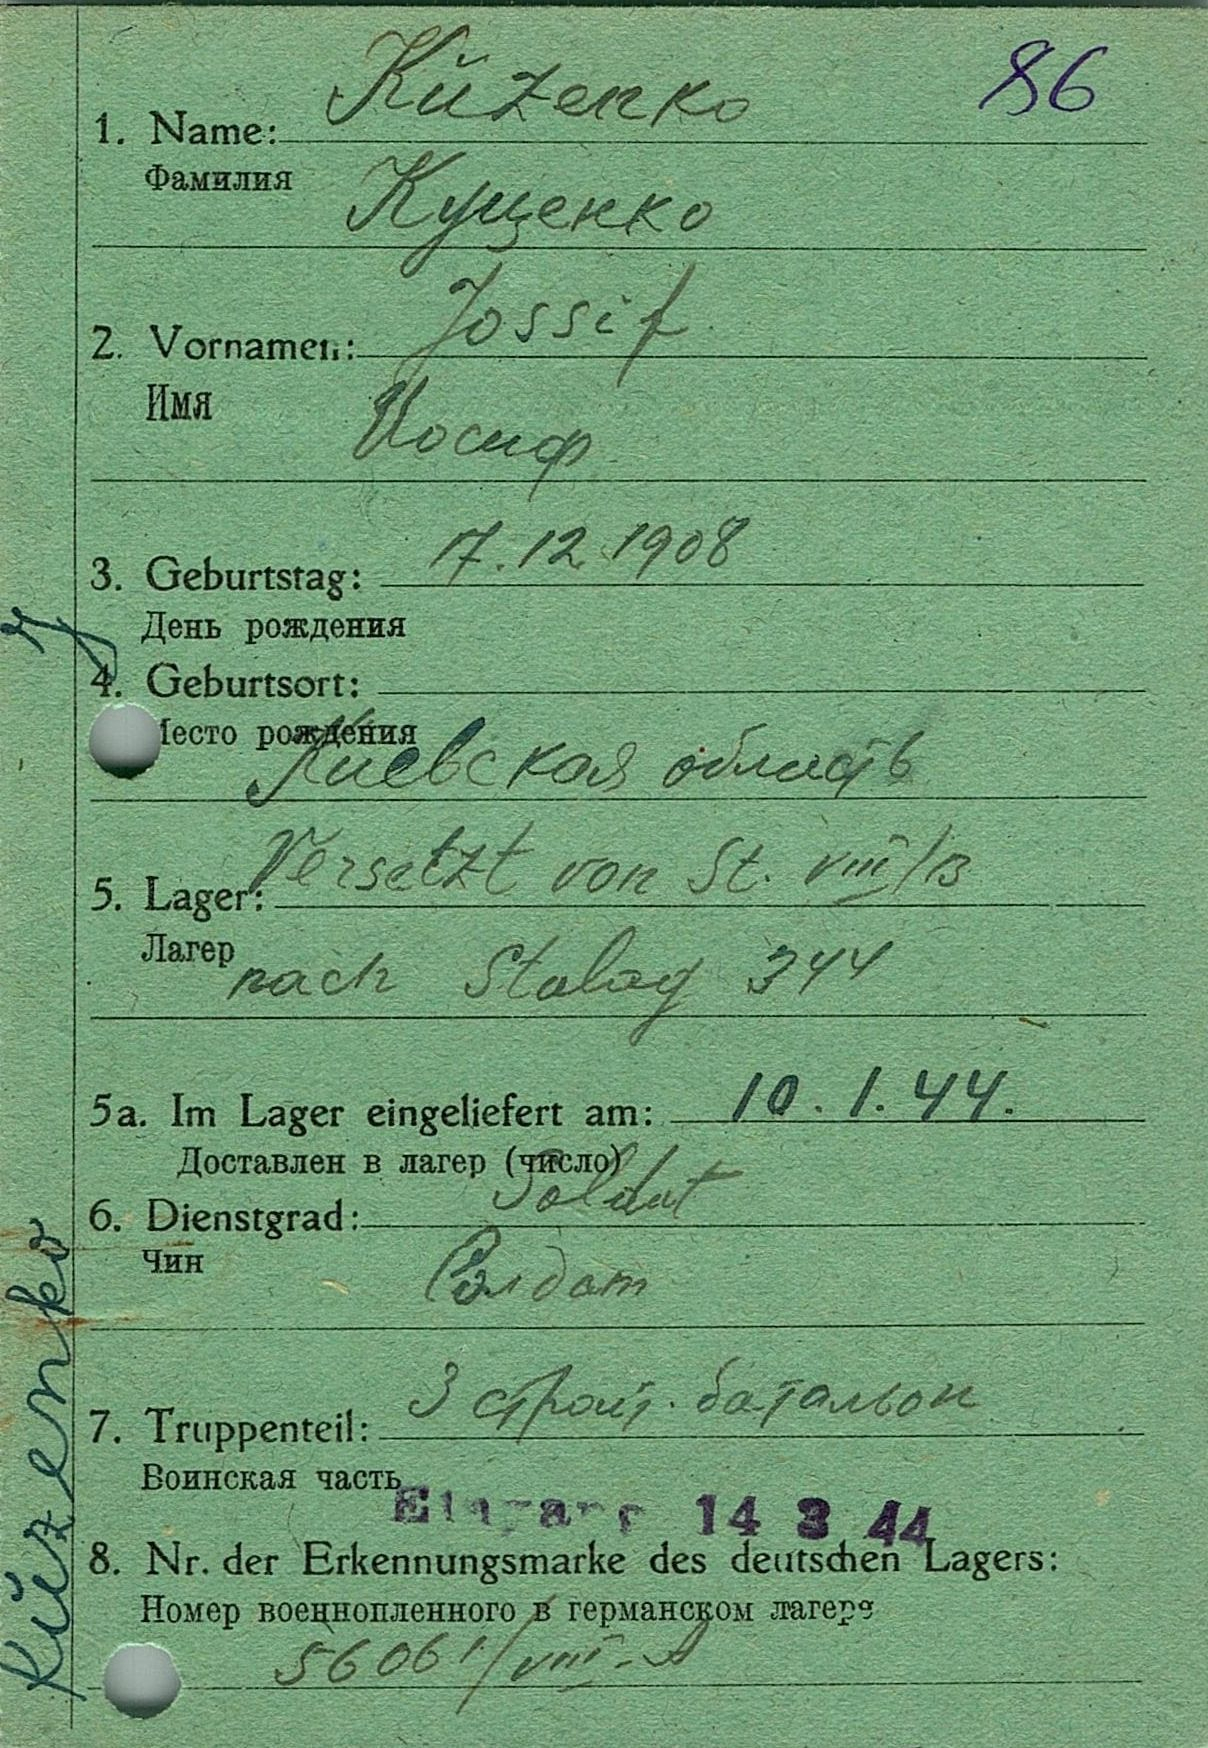 86
1. Name: Kŭzenko
Фамилия
Кущенко
2. Vornamen: Jossif
Имя
Иосиф
3. Geburtstag: 17.12.1908
День рождения
4. Geburtsort:
Место рождения
Киевская область
5. Lager: Versetzt von St. VIII/B
Лагер nach Stalag 344
5a. Im Lager eingeliefert am: 10.1.44.
Доставлен в лагер (число)
6. Dienstgrad: Soldat
Чин
Солдат
7. Truppenteil: 3 строит. батальон
Воинская часть
Eingang 14 3 44
8. Nr. der Erkennungsmarke des deutschen Lagers:
Номер военнопленного в германском лагере
56061/VIII-A
Kŭzenko